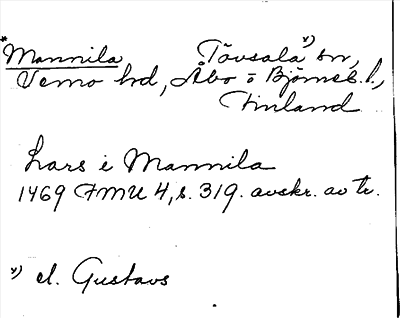 *Mannila Tövsala ×) sn,
Vemo hd, Åbo o Björneb. l.,
Finland
Lars i Mannila
1469 FMU 4, s. 319. avskr. av tr.
×) el. Gustavs